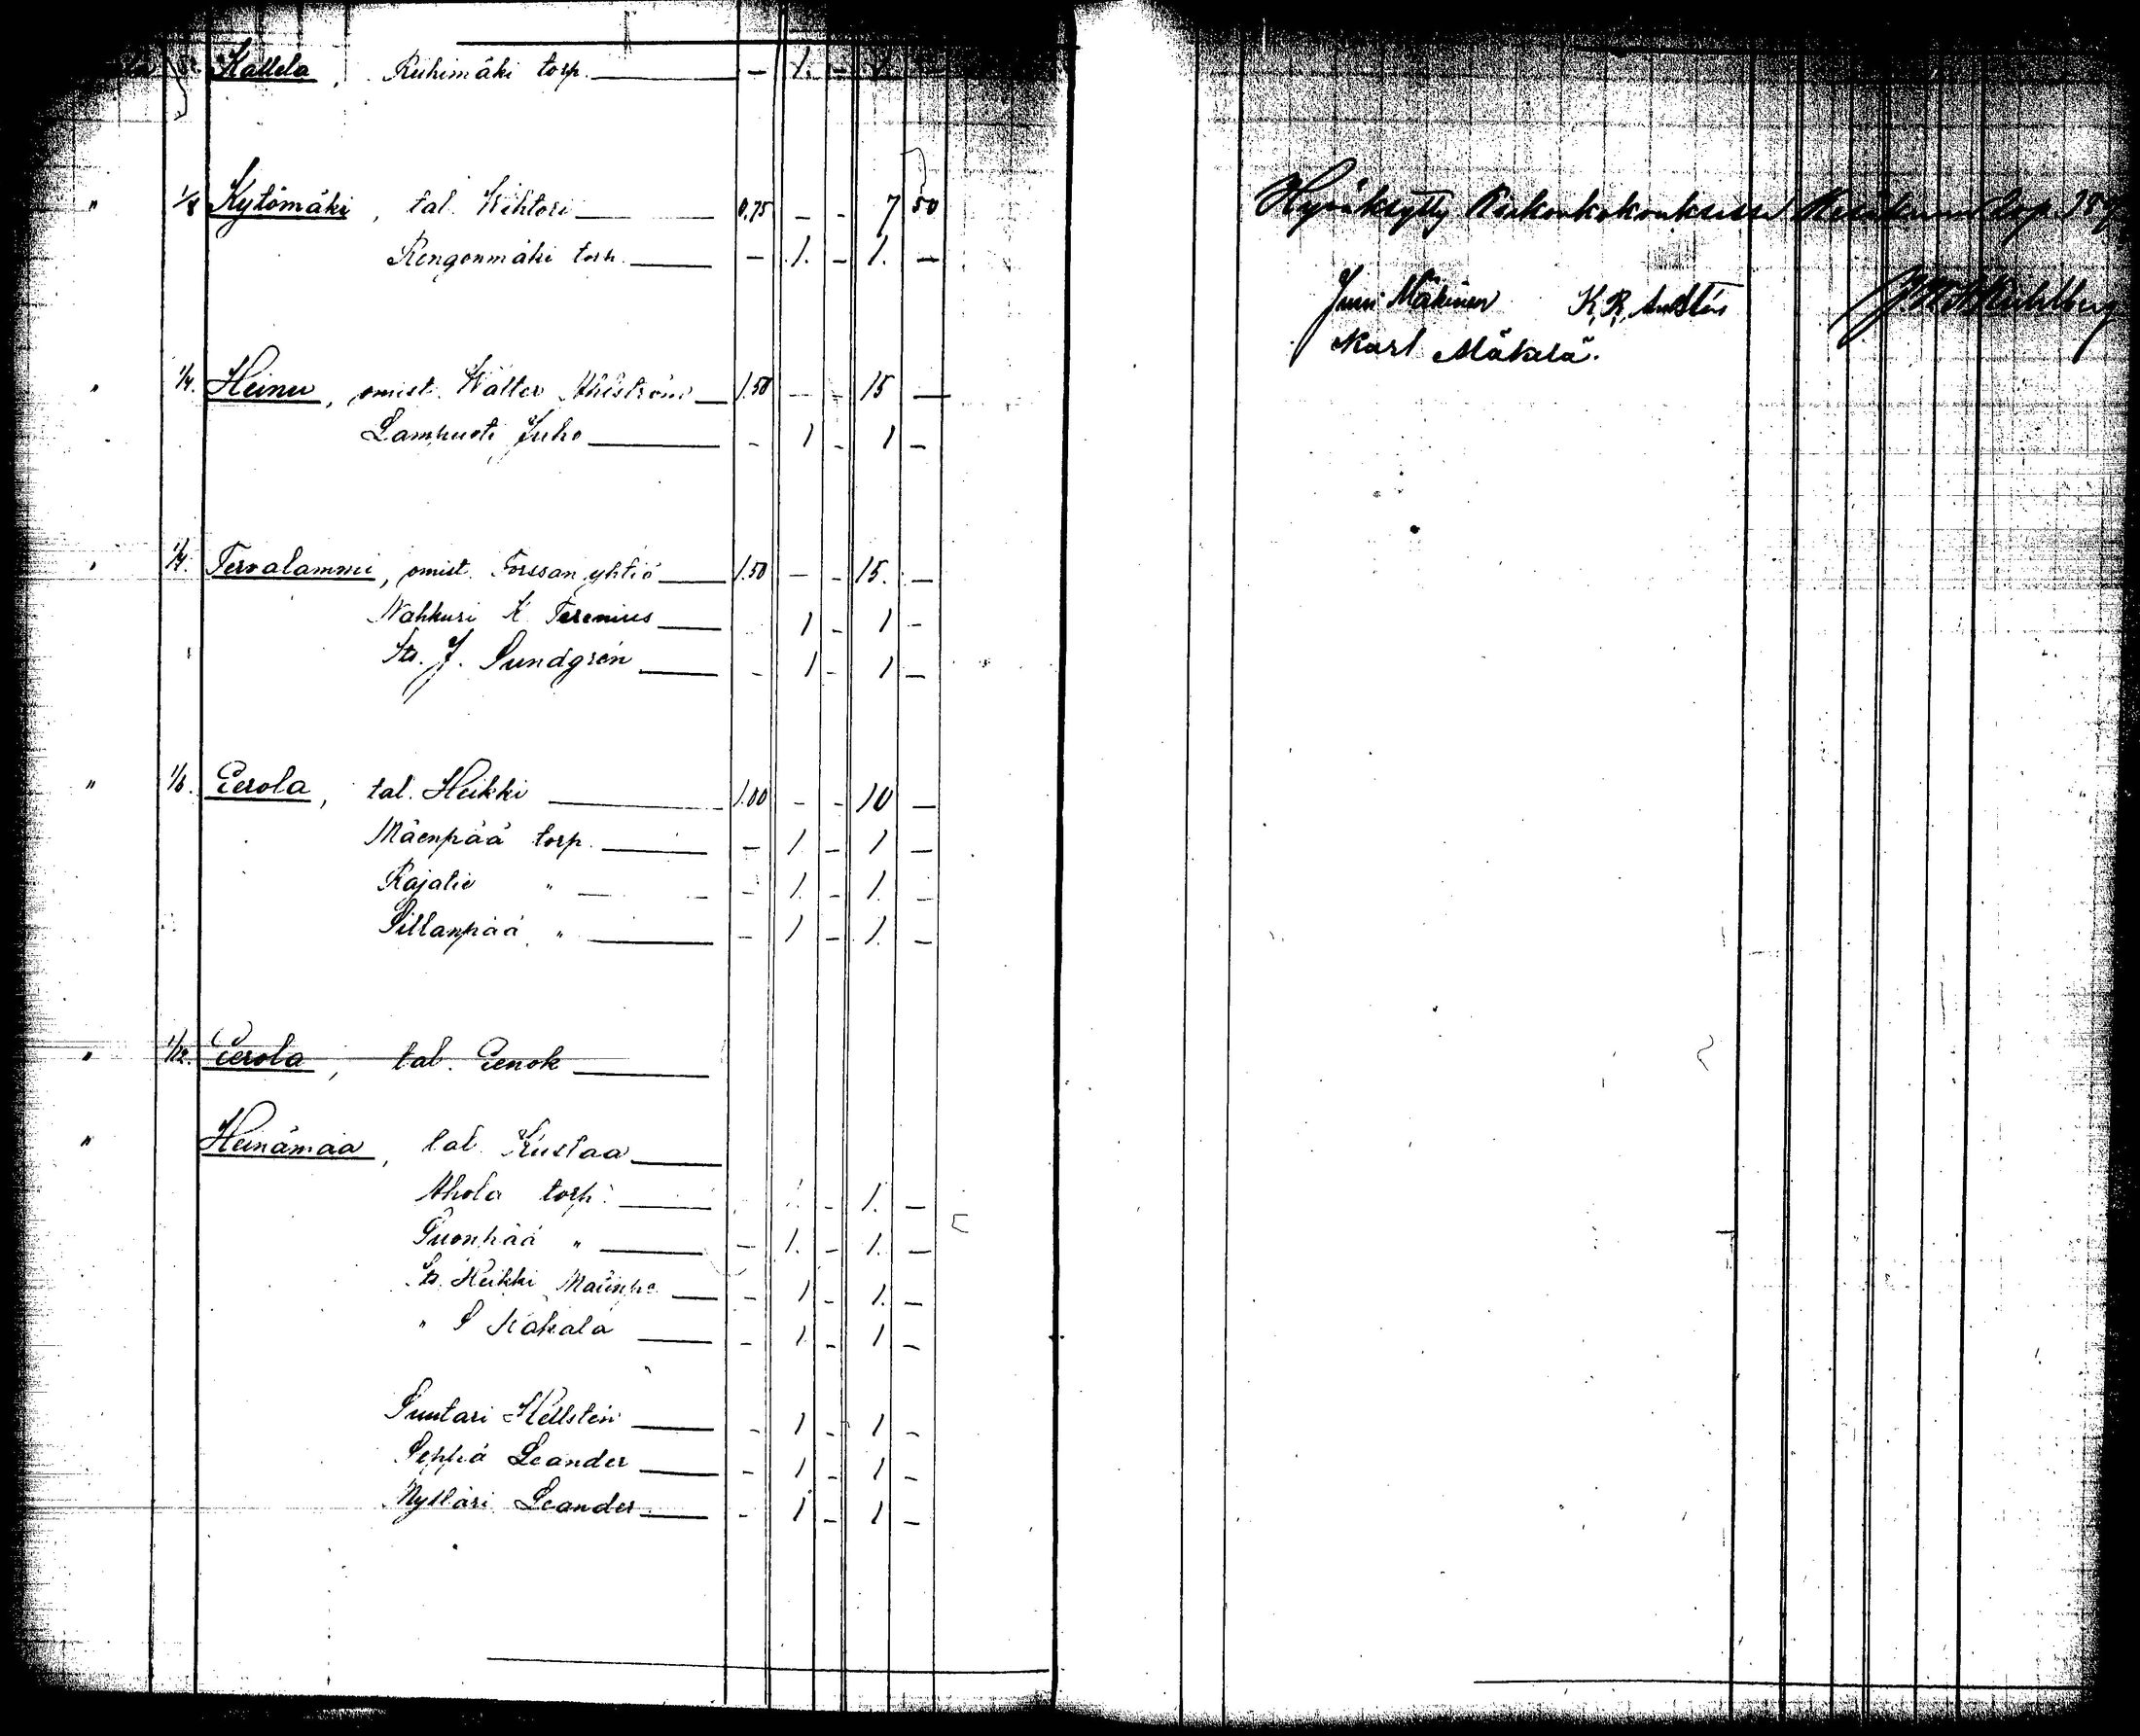 Kallela, Riihimäki torp. — — 1. — 1.
" 1/8 Kytömäki, tal. Wihtori — 0.75 — — 7 50
Rengonmäki torp. — — 1. — 1. —
" 1/4. Heinu, omist. Walter Ahlström — 1.50 — — 15 —
Lamhuoti Juho — — 1 — 1 —
" 1/4. Tervalammi, omist. Forssan yhtiö — 1.50 — — 15. —
Nahkuri K. Terenius — 1 — 1 —
Its. J. Sundgrén — — 1 — 1 —
" 1/6. Eerola, tal. Heikki — 1.00 — — 10 —
Mäenpää torp. — — 1 — 1 —
Rajatie " — — 1. — 1. —
Sillanpää " — — 1 — 1. —
" 1/12. Eerola, tal. Eenok —
" Heinämaa, tal. Kustaa —
Ahola torp. — 1. — 1. —
Suonpää " — — 1. — 1. —
Its. Heikki — — 1 — 1. —
" S — — 1. — 1 —
Suutari Hellstén — — 1 — 1 —
Seppä Leander — — 1 — 1 —
Mylläri Leander — — 1 — 1 —
Hyväksytty Kirkonkokouksessa Kesäkuun
Jussi Mäkinen K. R.
Karl Mäkelä.